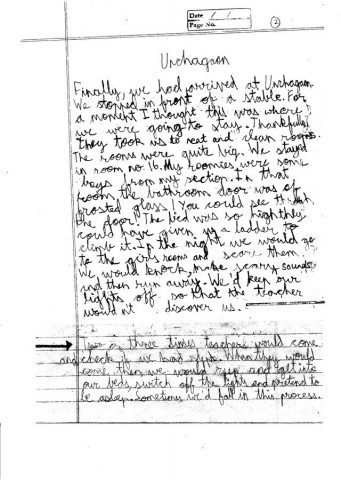 Date / /
Page No.
2
Unchagaon
Finally, we had arrived at Unchagaon.
We stopped in front of a stable. For
a moment I thought this was where
we were going to stay. Thankfully
they took us to neat and clean rooms.
The rooms were quite big. We stayed
in room no. 16. My roomies were some
boys from my section. In that
room the bathroom door was of
frosted glass! You could see through
the door. The bed was so high they
could have given us a ladder to
climb it. In the night we would go
to the girls rooms and scare them.
We would knock, make scary sounds
and then run away. We'd keep our
lights off so that the teacher
would'nt discover us.
Two or three times teachers would come
and check if we had slept. When they would
come then we would run and get into
our beds, switch off the lights and pretend to
be asleep. Sometimes we'd fall in this process.